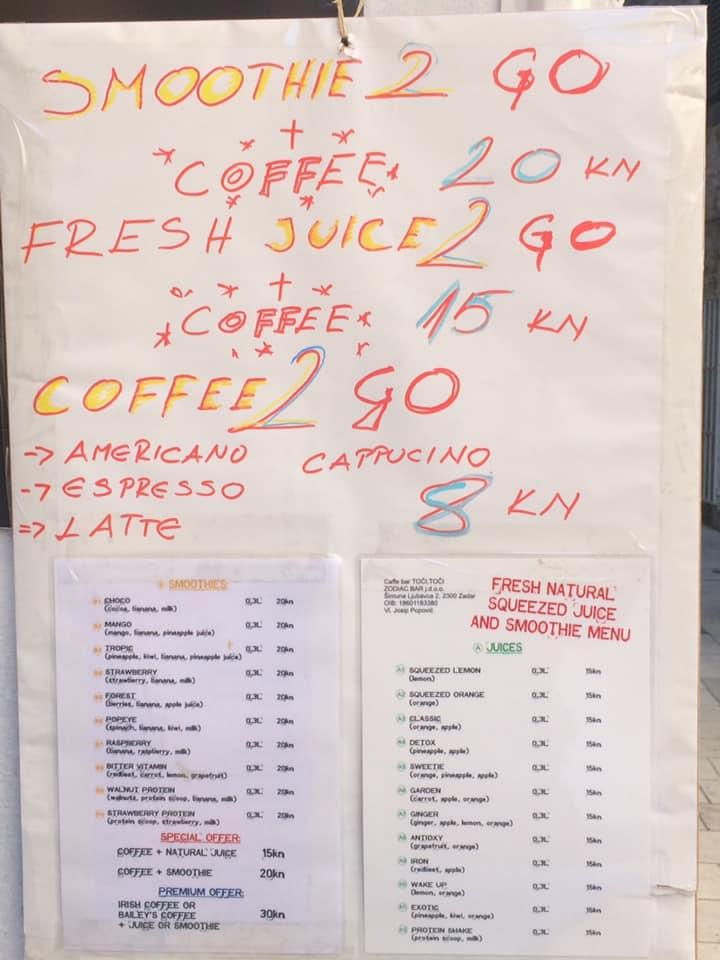 SMOOTHIE 2 GO
+
COFFEE 20 KN
FRESH JUICE 2 GO
+
COFFEE 15 KN
COFFEE 2 GO
-> AMERICANO CAPPUCINO
-> ESPRESSO
=> LATTE
8 KN
SMOOTHIES
CHOCO 0,3L 20kn
(cocoa, banana, milk)
MANGO 0,3L 20kn
(mango, banana, pineapple juice)
TROPIC 0,3L 20kn
(pineapple, kiwi, banana, pineapple juice)
STRAWBERRY 0,3L 20kn
(strawberry, banana, milk)
FOREST 0,3L 20kn
(berries, banana, apple juice)
POPEYE 0,3L 20kn
(spinach, banana, kiwi, milk)
RASPBERRY 0,3L 20kn
(banana, raspberry, milk)
BITTER VITAMIN 0,3L 20kn
(redbeet, carrot, lemon, grapefruit)
WALNUT PROTEIN 0,3L 20kn
(walnuts, protein scoop, banana, milk)
STRAWBERRY PROTEIN 0,3L 20kn
(protein scoop, strawberry, milk)
SPECIAL OFFER:
COFFEE + NATURAL JUICE 15kn
COFFEE + SMOOTHIE 20kn
PREMIUM OFFER:
IRISH COFFEE OR
BAILEY'S COFFEE 30kn
+ JUICE OR SMOOTHIE
Caffe bar TOČI,TOČI
ZODIAC BAR j.d.o.o.
Šimuna Ljubavica 2, 2300 Zadar
OIB: 18601183380
Vl. Josip Popović
FRESH NATURAL
SQUEEZED JUICE
AND SMOOTHIE MENU
A JUICES
A1 SQUEEZED LEMON 0,3L 15kn
(lemon)
A2 SQUEEZED ORANGE 0,3L 15kn
(orange)
A3 CLASSIC 0,3L 15kn
(orange, apple)
A4 DETOX 0,3L 15kn
(pineapple, apple)
A5 SWEETIE 0,3L 15kn
(orange, pineapple, apple)
A6 GARDEN 0,3L 15kn
(carrot, apple, orange)
A7 GINGER 0,3L 15kn
(ginger, apple, lemon, orange)
A8 ANTIOXY 0,3L 15kn
(grapefruit, orange)
IRON 0,3L 15kn
(redbeet, apple)
WAKE UP 0,3L 15kn
(lemon, orange)
EXOTIC 0,3L 15kn
(pineapple, kiwi, orange)
PROTEIN SHAKE 0,3L 15kn
(protein scoop, milk)